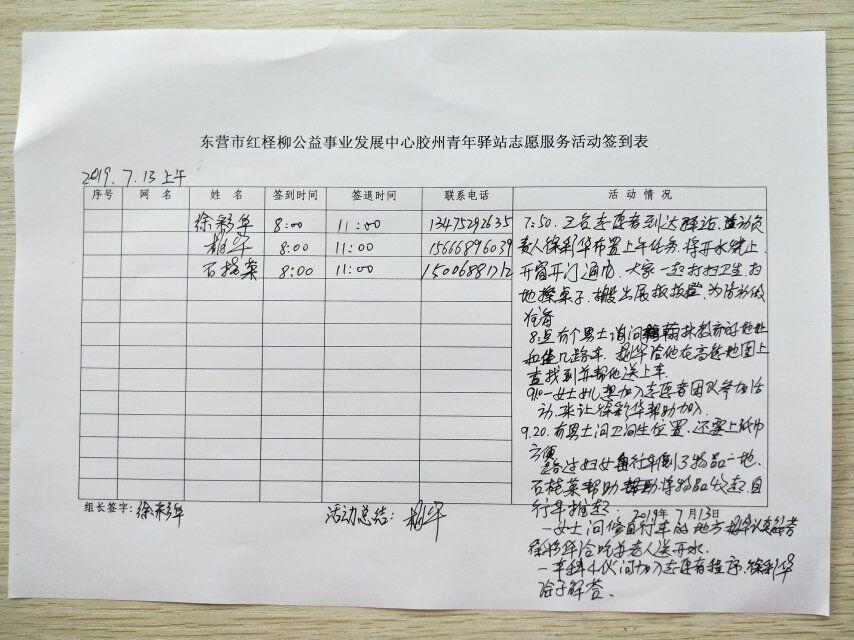 东营市红柽柳公益事业发展中心胶州青年驿站志愿服务活动签到表
2019.7.13上午
序号 网名 姓名 签到时间 签退时间 联系电话 活动情况
徐彩华 8:00 11:00 13475292635
8:00 11:00 15666896039
石桂荣 8:00 11:00
7:50.三名志愿者到达驿站.活动负
责人徐彩华布置上午任务.将开水烧上.
开窗开门通风.大家一起打扫卫生.扫
地擦桌子.搬出展板板凳.为活动做
准备
8点有个男士询问
和坐几路车.给他在高德地图上
查找到并帮他送上车.
9:10一女士女儿想加入志愿者团队参加活
动.来让徐彩华帮助加入.
9.20.有男士问卫生间位置.还要上纸巾
方便
路过妇女自行车倒了物品一地.
石桂荣帮助将物品收起.自
行车推起.
组长签字:徐彩华 活动总结:
2019年7月13日
一女士问修自行车的地方
徐彩华给吃药老人送开水.
一年轻小伙问加入志愿者程序.徐彩华
给予解答.